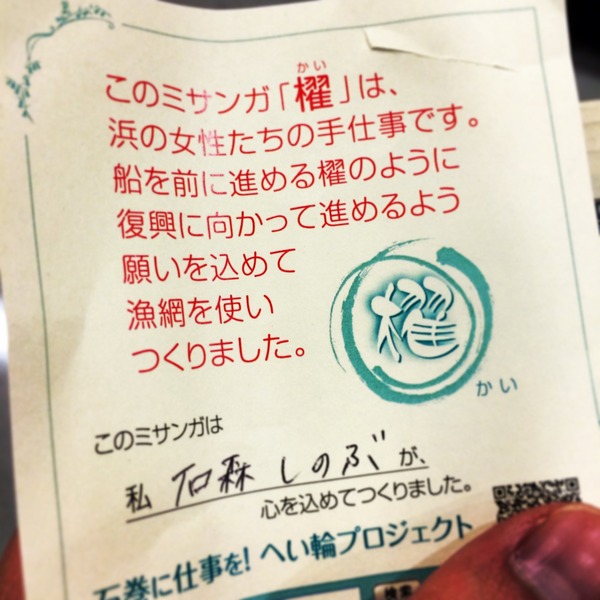 かい
このミサンガ「櫂」は、
浜の女性たちの手仕事です。
船を前に進める櫂のように
復興に向かって進めるよう
願いを込めて
漁網を使い
つくりました。
櫂
かい
このミサンガは
私 石森 しのぶ が、
心を込めてつくりました。
石巻に仕事を！へい輪プロジェクト
検索